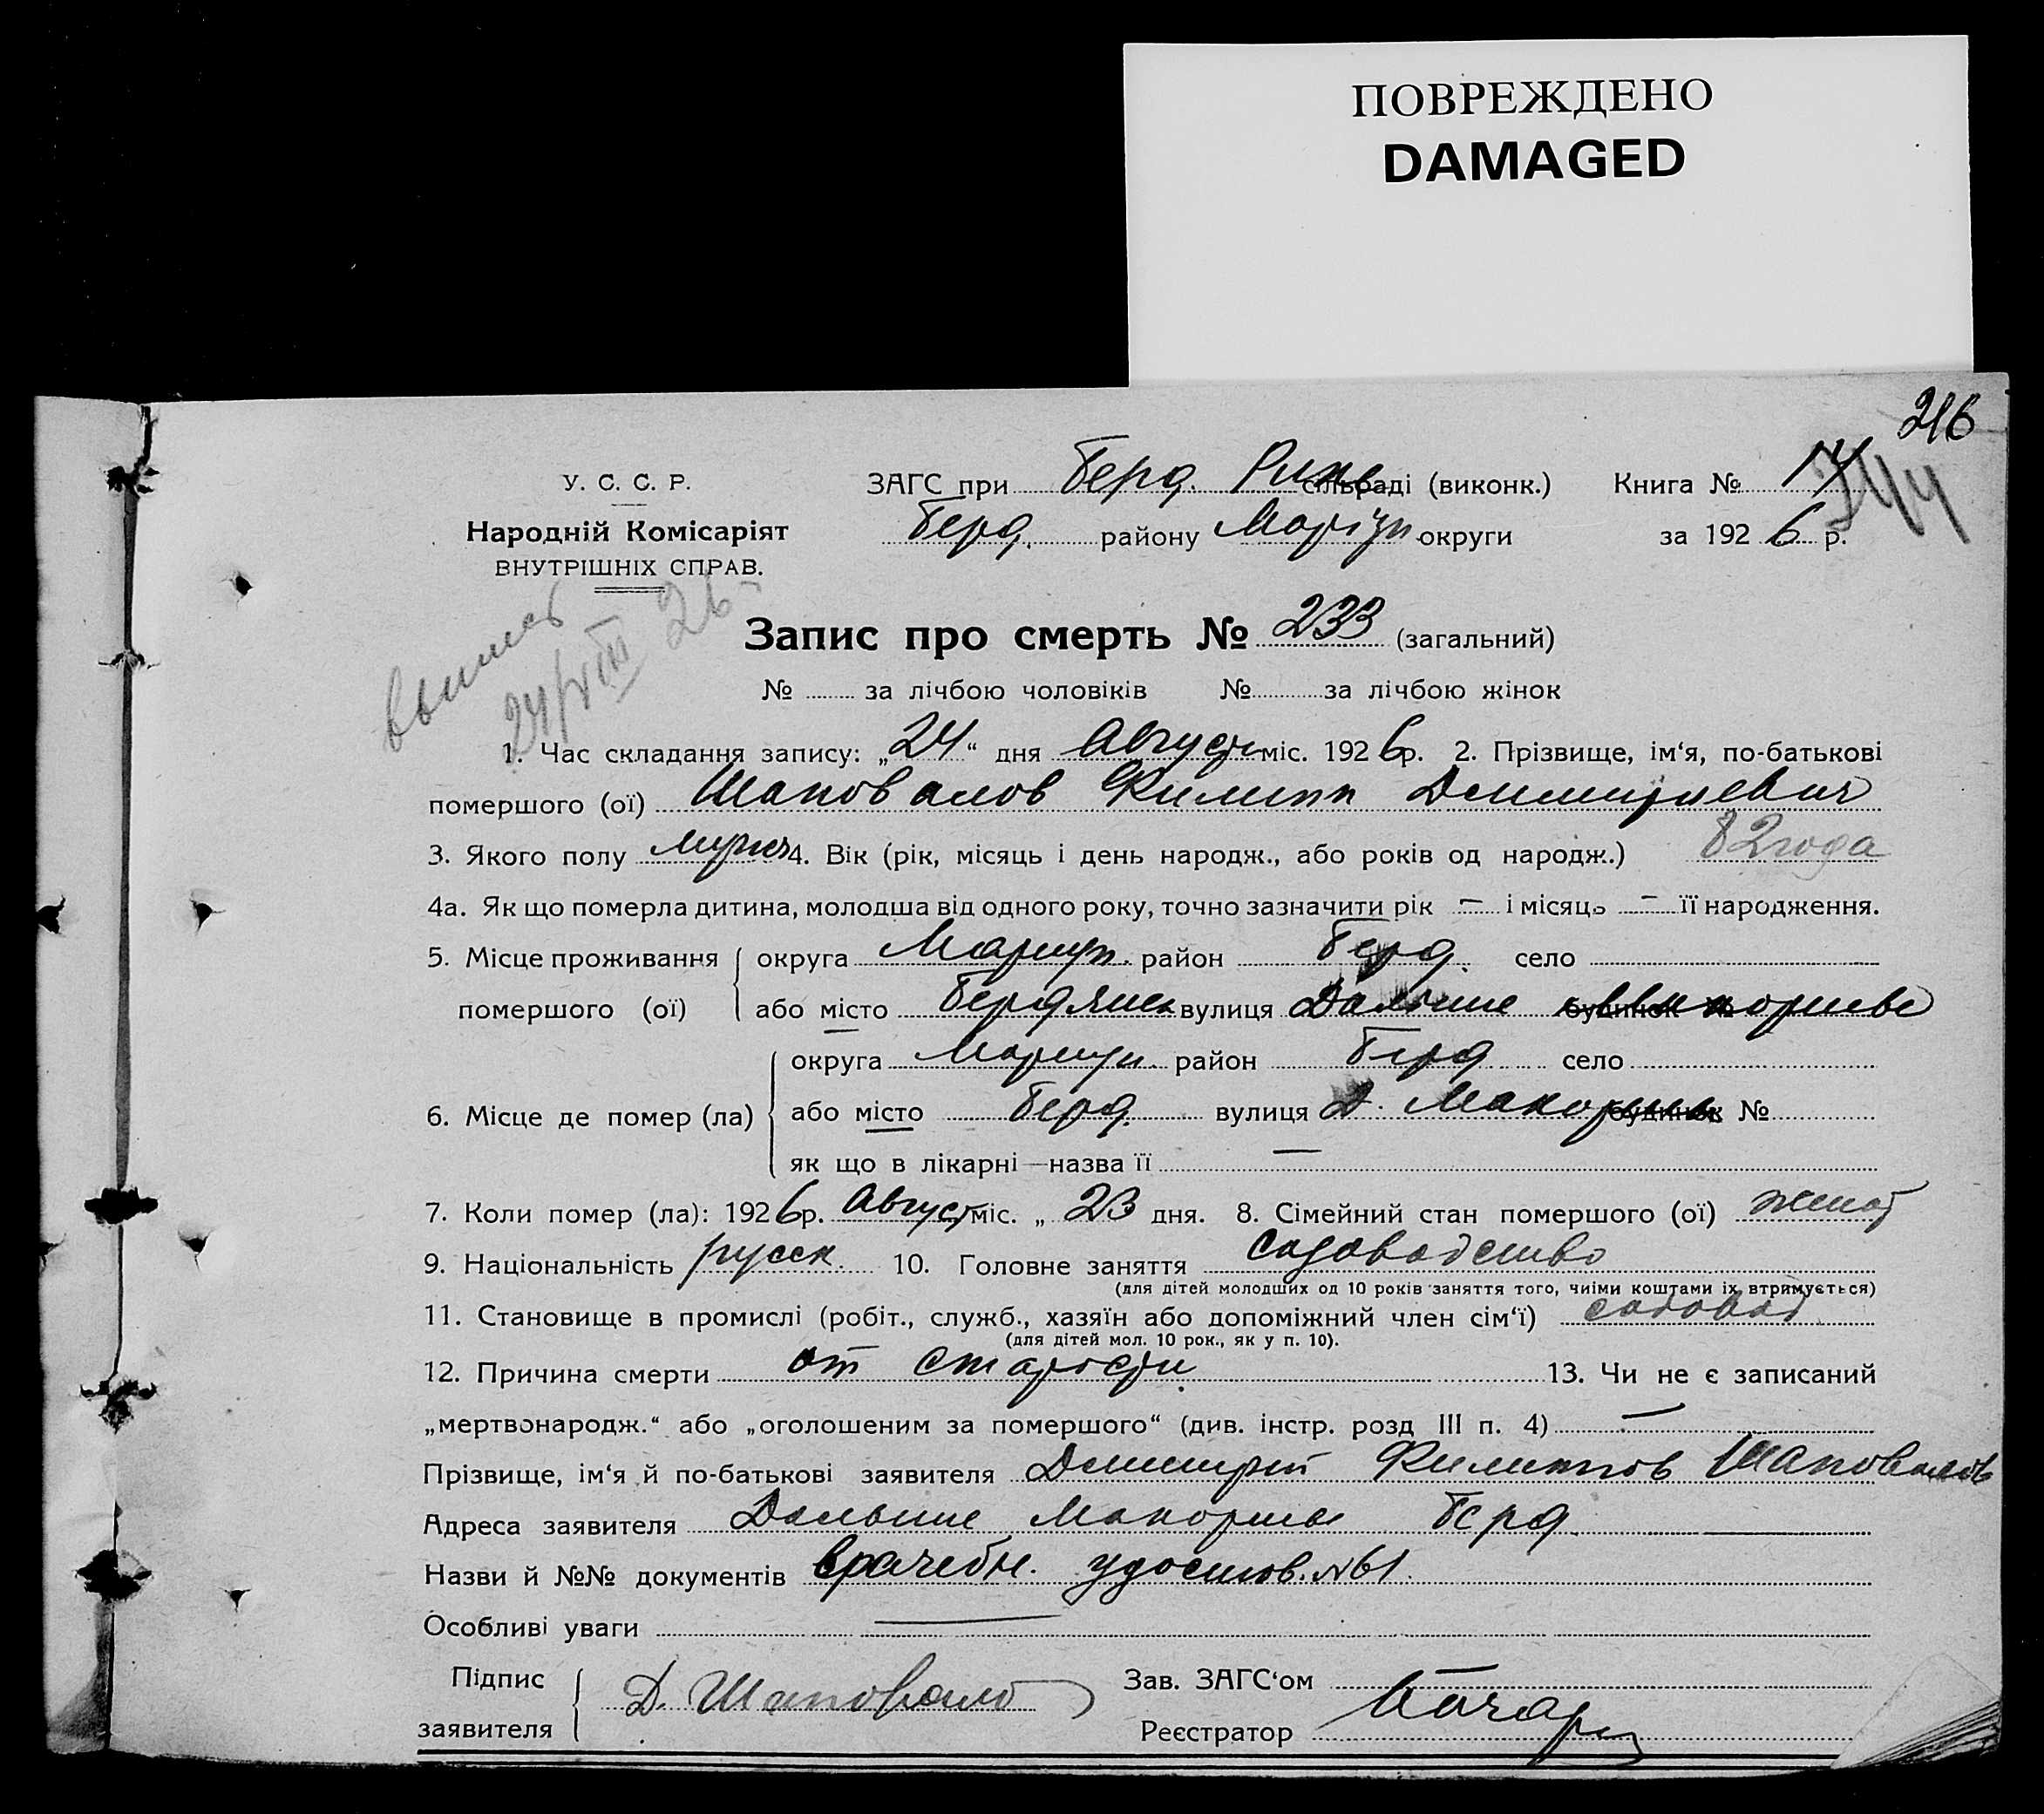 ПОВРЕЖДЕНО
DAMAGED
216
У. С. С. Р.
Народній Комісаріят
ВНУТРІШНІХ СПРАВ.
ЗАГС при Берд. сільраді (виконк.) Книга №
Берд. району Маріуп. округи за 1926 р.
выписъ
24/VIII 26
Запис про смерть № 233 (загальний)
№ за лічбою чоловіків № за лічбою жінок
1. Час складання запису: „24“ дня Августа міс. 1926р. 2. Прізвище, ім‘я, по-батькові
помершого (ої) Шаповалов Филипп Дмитриевич
3. Якого полу мужск 4. Вік (рік, місяць і день народж., або років од народж.) 82 года
4а. Як що померла дитина, молодша від одного року, точно зазначити рік – і місяць – її народження.
5. Місце проживання округа Мариуп. район Берд. село
помершого (ої) або місто Бердянск вулиця Дальние будинок №
округа Мариуп. район Берд село
6. Місце де помер (ла) або місто Берд. вулиця Д. Макорты будинок №
як що в лікарні—назва її —
7. Коли помер (ла): 1926р. Август міс. „ 23 дня. 8. Сімейний стан помершого (ої) женат
9. Національність русск. 10. Головне заняття садоводство
(для дітей молодших од 10 років заняття того, чиїми коштами їх втримується)
11. Становище в промислі (робіт., служб., хазяїн або допоміжний член сім‘ї) садовод
(для дітей мол. 10 рок., як у п. 10).
12. Причина смерти от старости 13. Чи не є записаний
„мертвонародж.“ або „оголошеним за помершого“ (див. інстр. розд III п. 4) —
Прізвище, ім‘я й по-батькові заявителя Дмитрий Филиппов Шаповалов
Адреса заявителя Дальние Макорты Берд
Назви й №№ документів врачебн. удостов. №61.
Особливі уваги —
Підпис
заявителя Д. Шаповалов
Зав. ЗАГС‘ом
Реєстратор